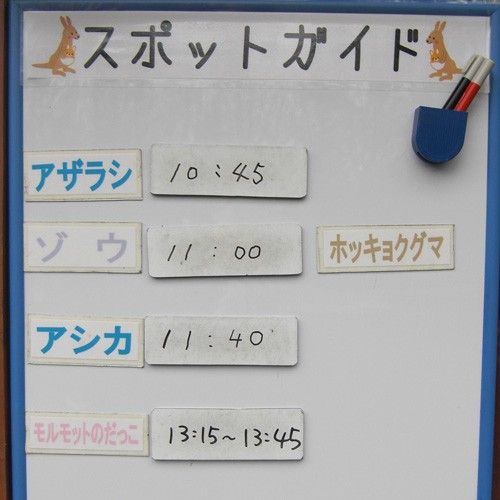 スポットガイド
アザラシ 10:45
ゾウ 11:00 ホッキョクグマ
アシカ 11:40
モルモットのだっこ 13:15~13:45